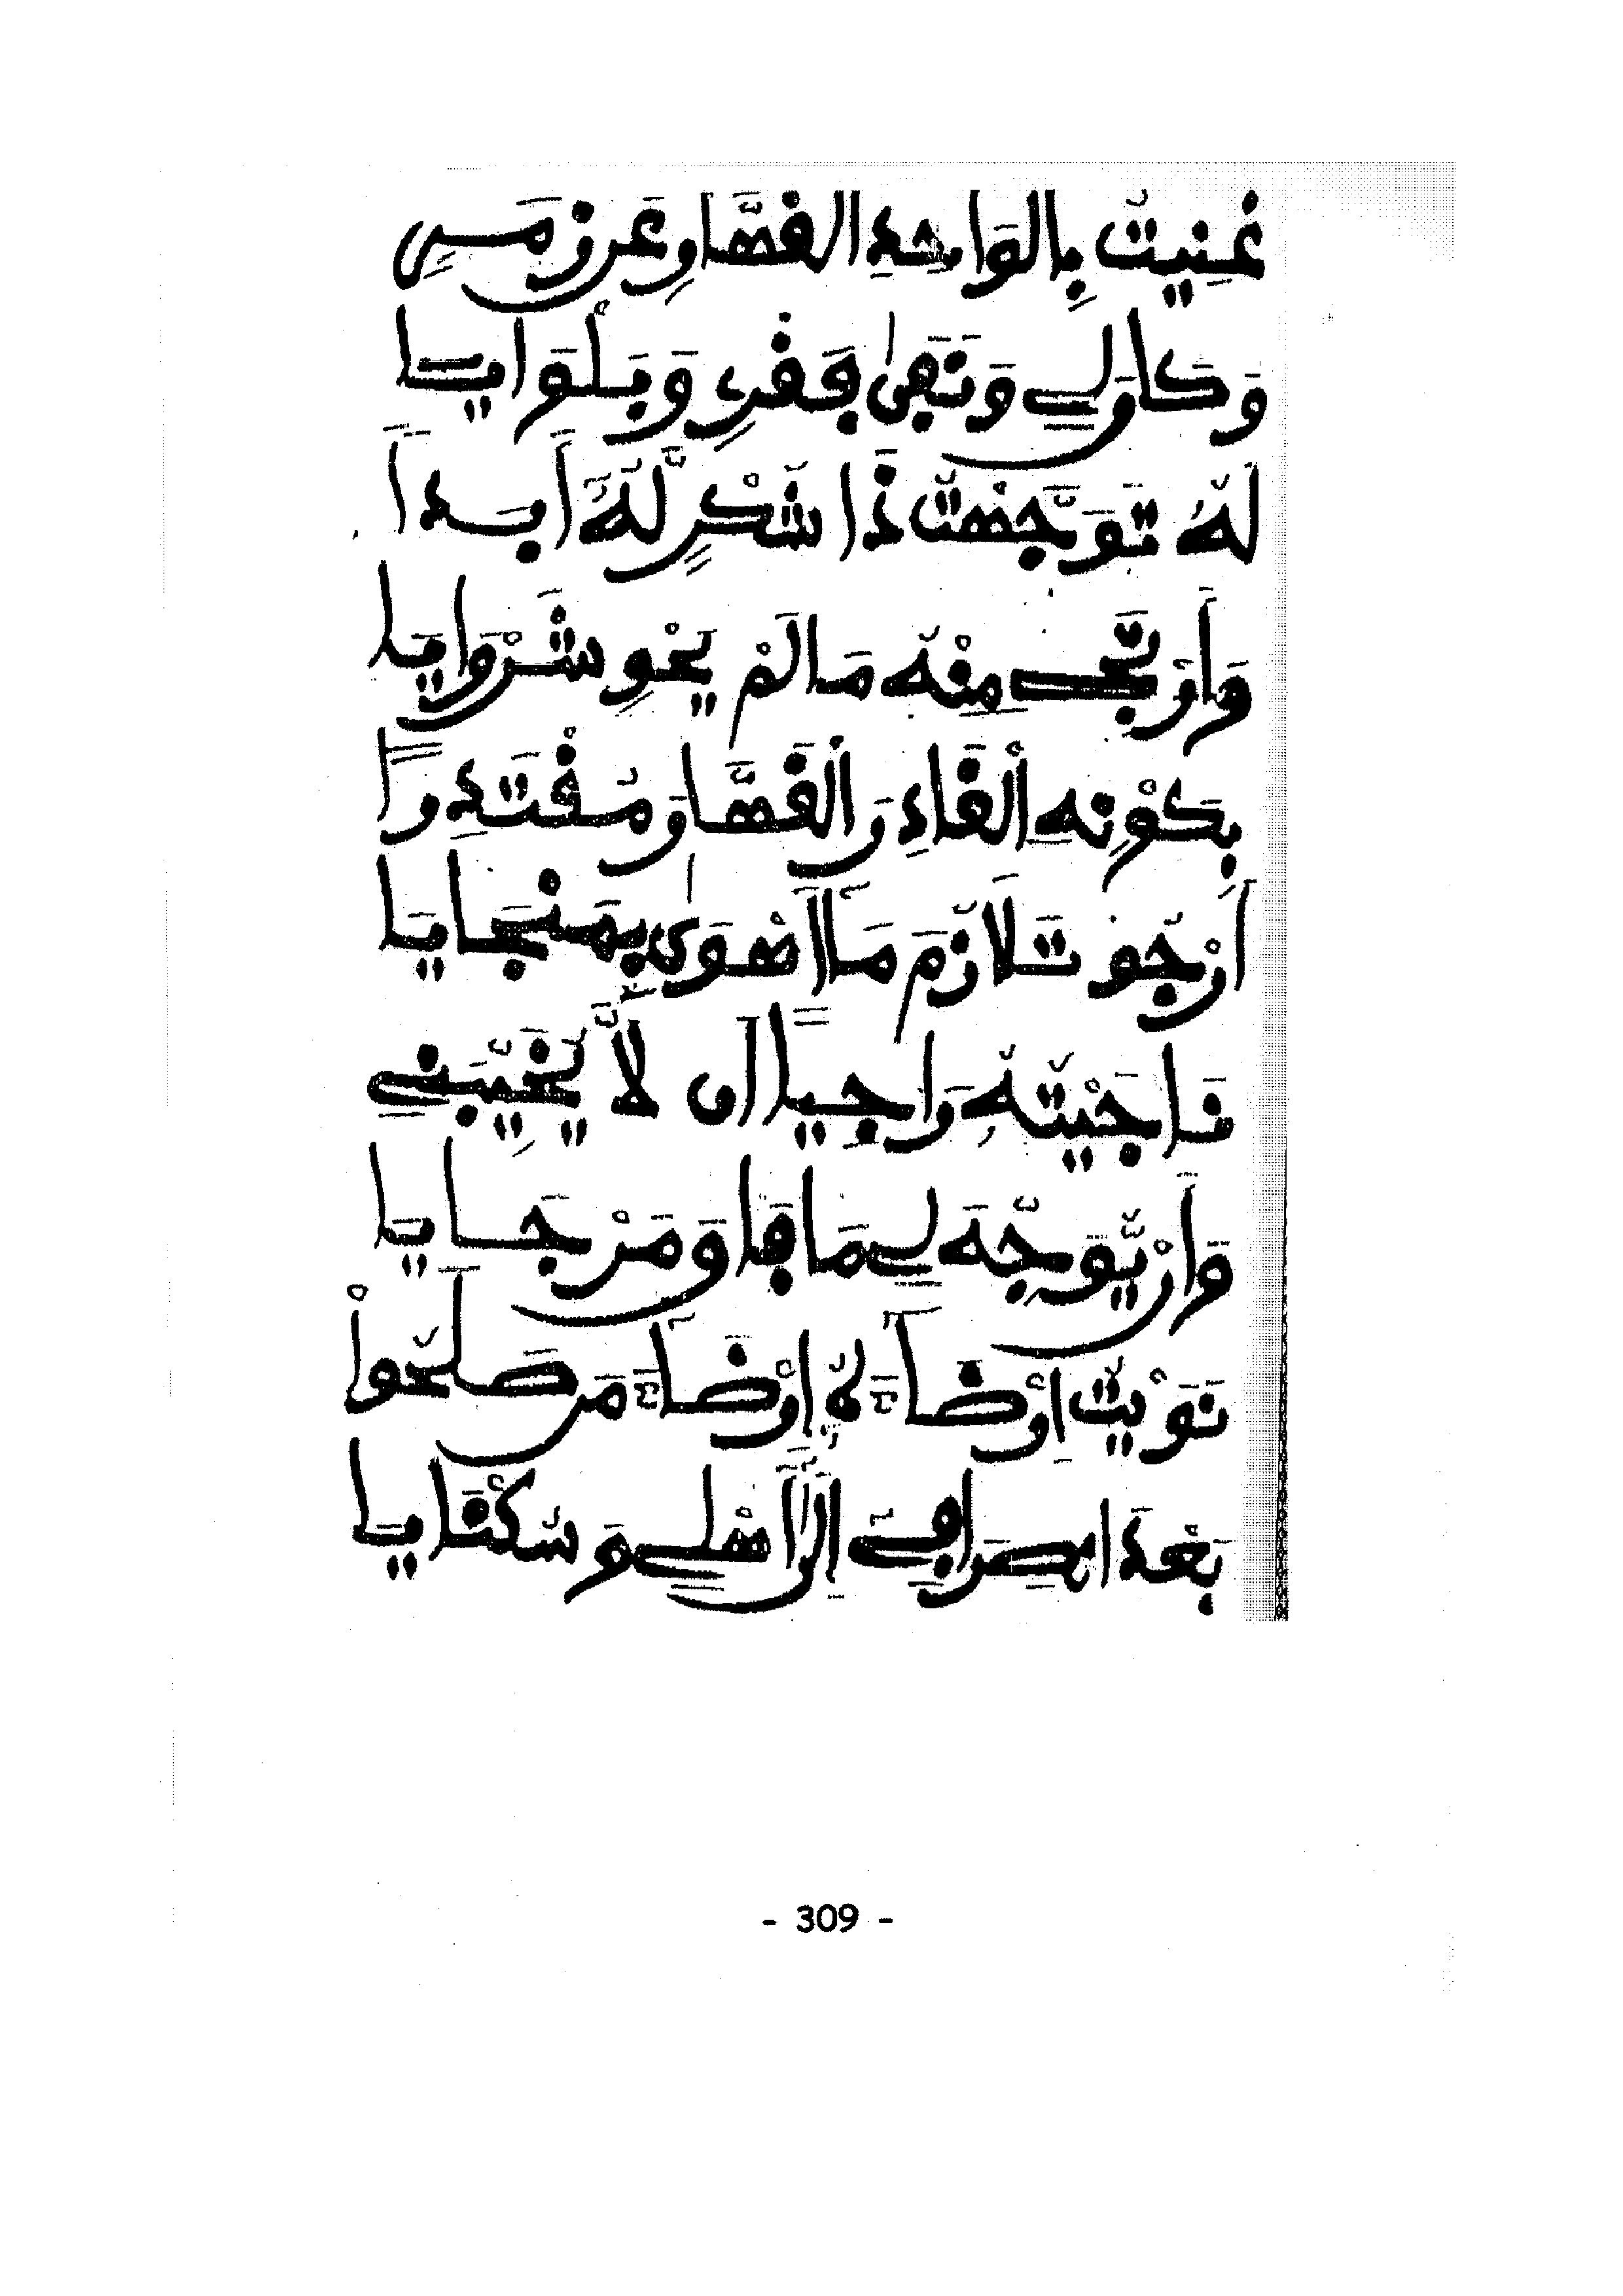 غَنِيتُ بِالْوَاحِدِ الْقَهَّارِ عَن زَمَنِي
وَكَانَ لِي وَنَفَى فَقْرِي وَبَلْوَايَا
لَهُ تَوَجَّهْتُ ذَا شُكْرٍ لَّهُ أَبَدًا
وَأَن تَجِدَ مِنْهُ مَا لَمْ يَحْوِ شَرْوَايَا
بِكَوْنِهِ الْقَادِرَ الْقَهَّارَ مُقْتَدِرًا
أَرْجُو تَلَازُمَ مَا أَهْوَى بِمَنْجَايَا
نَاجَيْتُهُ رَاجِيًا أَن لَّا يُخَيِّبَنِي
وَأَن يُوَجِّهَ لِي مَا فَاقَ مَن جَايَا
نَوَيْتُ إِرْضَاءَهُ إِرْضَاءَ مَن صَلَحُوا
بَعْدَ انْصِرَافِي إِلَى أَهْلِي وَسُكْنَايَا
- 309 -